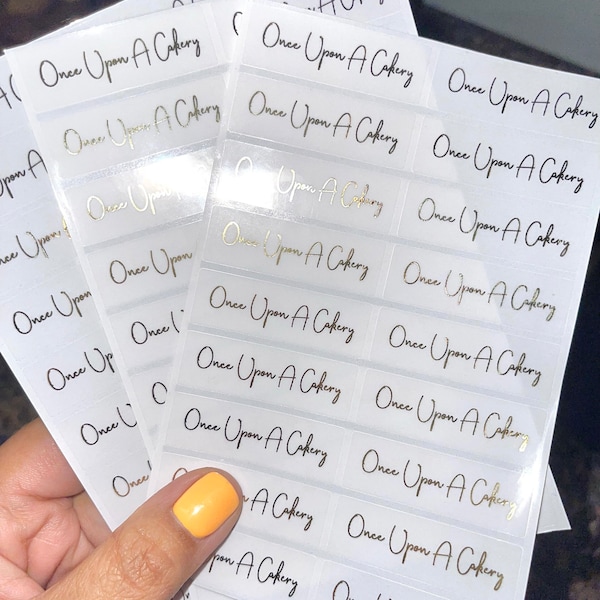 Upon A
Upon
Once Upon
Once
Once
Once
Once Upon A Cakery
Once Upon A Cakery
Once Upon
Once Upon
Once
Once
Once Upon A Cakery
Once Upon A Cakery
Once Upon A Cakery
Once Upon A Cakery
Once Upon A Cakery
Once Upon A Cakery
Once Upon A Cakery
Once Upon A Cakery
Once Upon A Cakery
Once Upon A Cakery
Once Upon A Cakery
Once Upon A Cakery
Once Upon A Cakery
Once Upon A Cakery
A Cakery
Once Upon A Cakery
A Cakery
Once Upon A Cakery